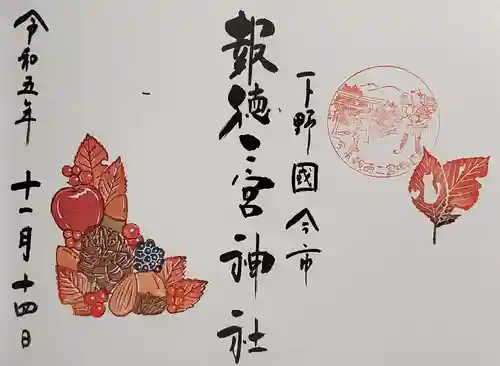 下野國今市
報徳二宮神社
令和五年十一月十四日